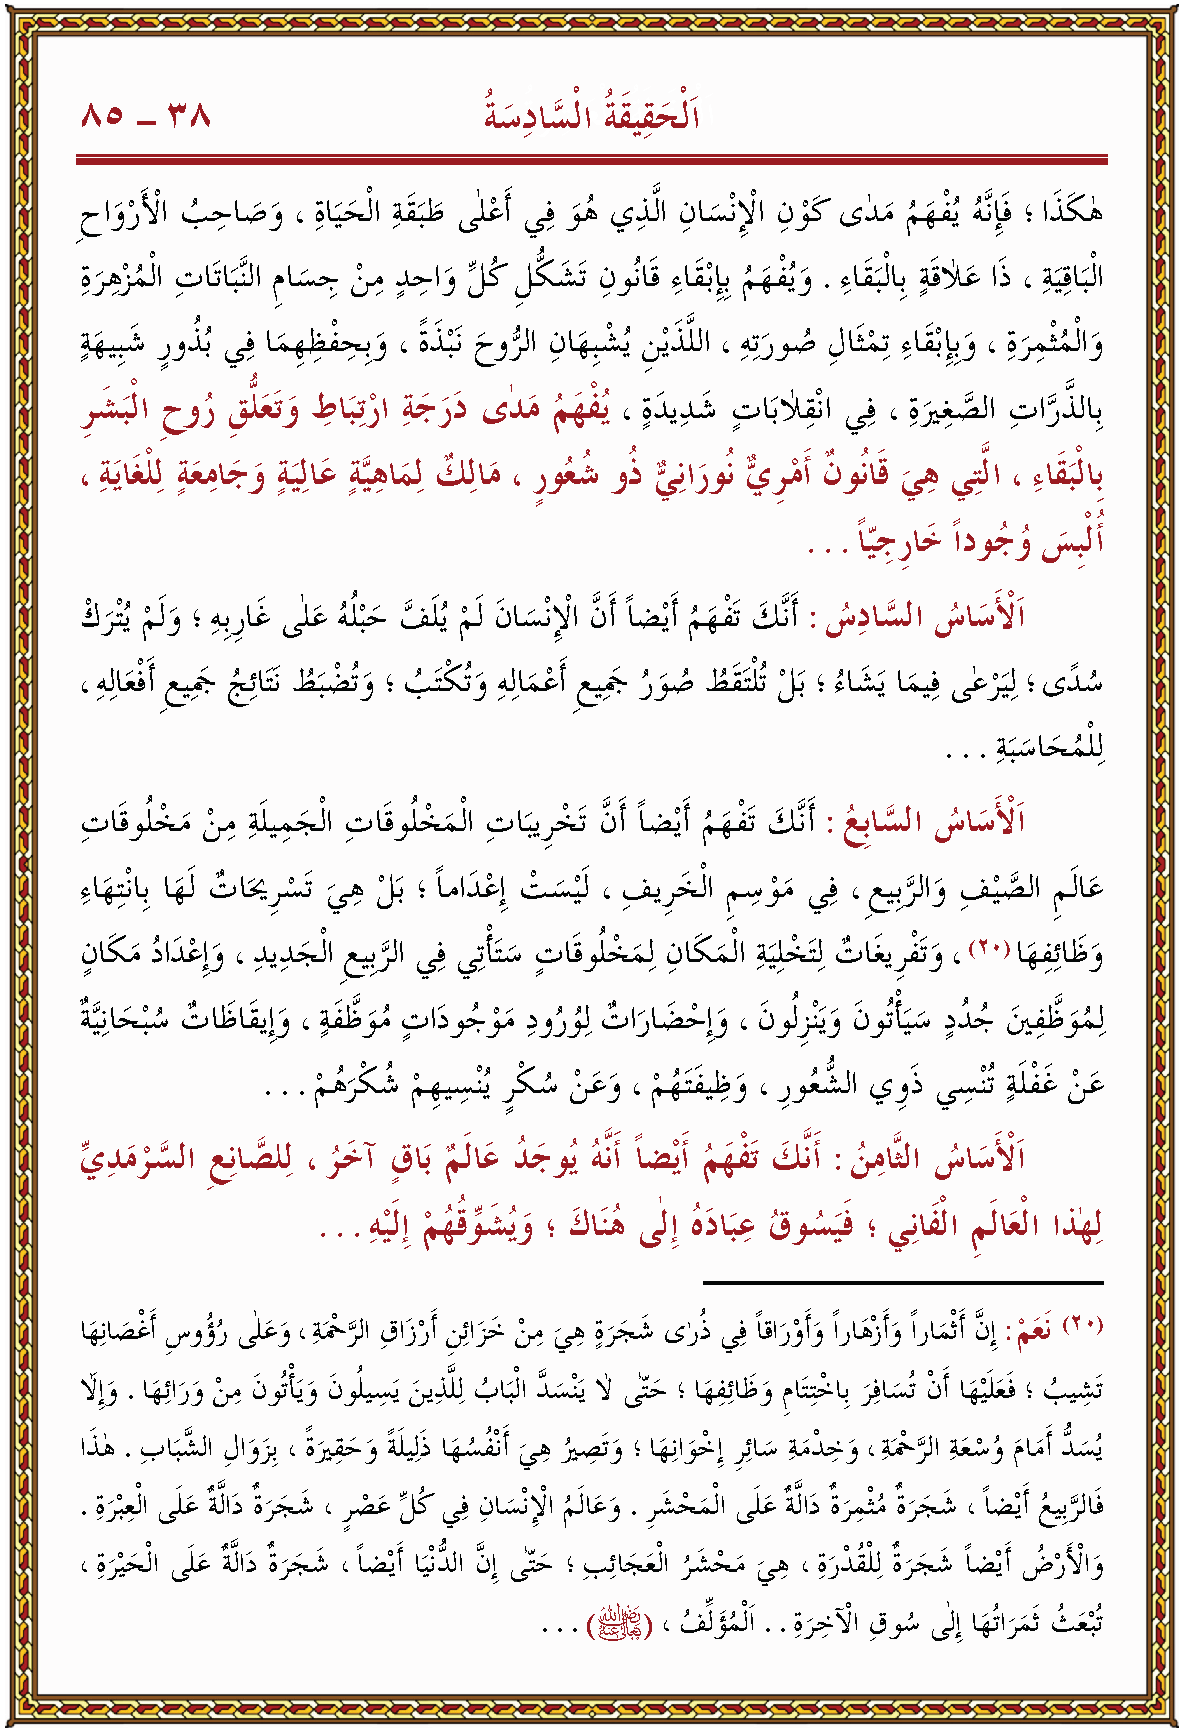 اَلْحَقِيقَةُ السَّادِسَةُ ٣٨ ـ ٨٥
هٰكَذَا ؛ فَإِنَّهُ يُفْهَمُ مَدٰى كَوْنِ الْإِنْسَانِ الَّذِي هُوَ فِي أَعْلٰى طَبَقَةِ الْحَيَاةِ ، وَصَاحِبُ الْأَرْوَاحِ
الْبَاقِيَةِ ، ذَا عَلاٰقَةٍ بِالْبَقَاءِ . وَيُفْهَمُ بِإِبْقَاءِ قَانُونِ تَشَكُّلِ كُلِّ وَاحِدٍ مِنْ جِسَامِ النَّبَاتَاتِ الْمُزْهِرَةِ
وَالْمُثْمِرَةِ ، وَبِإِبْقَاءِ تِمْثَالِ صُورَتِهِ ، اللَّذَيْنِ يُشْبِهَانِ الرُّوحَ نَبْذَةً ، وَبِحِفْظِهِمَا فِي بُذُورٍ شَبِيهَةٍ
بِالذَّرَّاتِ الصَّغِيرَةِ ، فِي انْقِلاٰبَاتٍ شَدِيدَةٍ ، يُفْهَمُ مَدٰى دَرَجَةِ ارْتِبَاطِ وَتَعَلُّقِ رُوحِ الْبَشَرِ
بِالْبَقَاءِ ، الَّتِي هِيَ قَانُونٌ أَمْرِيٌّ نُورَانِيٌّ ذُو شُعُورٍ ، مَالِكٌ لِمَاهِيَّةٍ عَالِيَةٍ وَجَامِعَةٍ لِلْغَايَةِ ،
أُلْبِسَ وُجُوداً خَارِجِيّاً . . .
اَلْأَسَاسُ السَّادِسُ : أَنَّكَ تَفْهَمُ أَيْضاً أَنَّ الْإِنْسَانَ لَمْ يُلَفَّ حَبْلُهُ عَلٰى غَارِبِهِ ؛ وَلَمْ يُتْرَكْ
سُدًى ؛ لِيَرْعٰى فِيمَا يَشَاءُ ؛ بَلْ تُلْتَقَطُ صُوَرُ جَمِيعِ أَعْمَالِهِ وَتُكْتَبُ ؛ وَتُضْبَطُ نَتَائِجُ جَمِيعِ أَفْعَالِهِ ،
لِلْمُحَاسَبَةِ . . .
اَلْأَسَاسُ السَّابِعُ : أَنَّكَ تَفْهَمُ أَيْضاً أَنَّ تَخْرِيبَاتِ الْمَخْلُوقَاتِ الْجَمِيلَةِ مِنْ مَخْلُوقَاتِ
عَالَمِ الصَّيْفِ وَالرَّبِيعِ ، فِي مَوْسِمِ الْخَرِيفِ ، لَيْسَتْ إِعْدَاماً ؛ بَلْ هِيَ تَسْرِيحَاتٌ لَهَا بِانْتِهَاءِ
وَظَائِفِهَا ‹٢٠› ، وَتَفْرِيغَاتٌ لِتَخْلِيَةِ الْمَكَانِ لِمَخْلُوقَاتٍ سَتَأْتِي فِي الرَّبِيعِ الْجَدِيدِ ، وَإِعْدَادُ مَكَانٍ
لِمُوَظَّفِينَ جُدُدٍ سَيَأْتُونَ وَيَنْزِلُونَ ، وَإِحْضَارَاتٌ لِوُرُودِ مَوْجُودَاتٍ مُوَظَّفَةٍ ، وَإِيقَاظَاتٌ سُبْحَانِيَّةٌ
عَنْ غَفْلَةٍ تُنْسِي ذَوِي الشُّعُورِ ، وَظِيفَتَهُمْ ، وَعَنْ سُكْرٍ يُنْسِيهِمْ شُكْرَهُمْ . . .
اَلْأَسَاسُ الثَّامِنُ : أَنَّكَ تَفْهَمُ أَيْضاً أَنَّهُ يُوجَدُ عَالَمٌ بَاقٍ آخَرُ ، لِلصَّانِعِ السَّرْمَدِيِّ
لِهٰذَا الْعَالَمِ الْفَانِي ؛ فَيَسُوقُ عِبَادَهُ إِلٰى هُنَاكَ ؛ وَيُشَوِّقُهُمْ إِلَيْهِ . . .
‹٢٠› نَعَمْ : إِنَّ أَثْمَاراً وَأَزْهَاراً وَأَوْرَاقاً فِي ذُرٰى شَجَرَةٍ هِيَ مِنْ خَزَائِنِ أَرْزَاقِ الرَّحْمَةِ ، وَعَلٰى رُؤُوسِ أَغْصَانِهَا
تَشِيبُ ؛ فَعَلَيْهَا أَنْ تُسَافِرَ بِاخْتِتَامِ وَظَائِفِهَا ؛ حَتّٰى لاٰ يَنْسَدَّ الْبَابُ لِلَّذِينَ يَسِيلُونَ وَيَأْتُونَ مِنْ وَرَائِهَا . وَإِلاَّ
يُسَدُّ أَمَامَ وُسْعَةِ الرَّحْمَةِ ، وَخِدْمَةِ سَائِرِ إِخْوَانِهَا ؛ وَتَصِيرُ هِيَ أَنْفُسُهَا ذَلِيلَةً وَحَقِيرَةً ، بِزَوَالِ الشَّبَابِ . هٰذَا
فَالرَّبِيعُ أَيْضاً ، شَجَرَةٌ مُثْمِرَةٌ دَالَّةٌ عَلَى الْمَحْشَرِ . وَعَالَمُ الْإِنْسَانِ فِي كُلِّ عَصْرٍ ، شَجَرَةٌ دَالَّةٌ عَلَى الْعِبْرَةِ .
وَالْأَرْضُ أَيْضاً شَجَرَةٌ لِلْقُدْرَةِ ، هِيَ مَحْشَرُ الْعَجَائِبِ ؛ حَتّٰى إِنَّ الدُّنْيَا أَيْضاً ، شَجَرَةٌ دَالَّةٌ عَلَى الْحَيْرَةِ ،
تُبْعَثُ ثَمَرَاتُهَا إِلٰى سُوقِ الْآخِرَةِ . . اَلْمُؤَلِّفُ ، (رَضِيَ اللهُ تَعَالٰى عَنْهُ) . . .